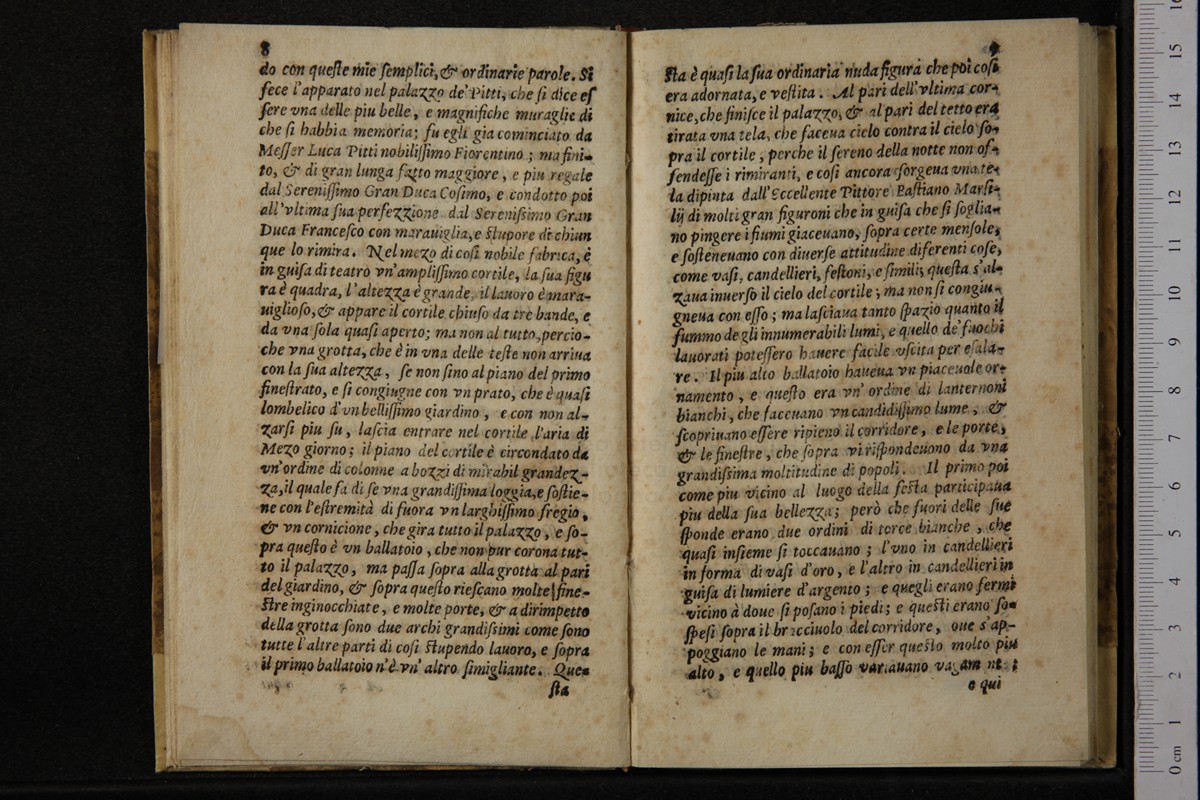 8
do con queſte mie ſemplici, & ordinarie parole. Si
fece l'apparato nel palazzo de' Pitti, che ſi dice eſ
ſere vna delle piu belle, e magnifiche muraglie di
che ſi habbia memoria; fu egli gia cominciato da
Meſſer Luca Pitti nobiliſſimo Fiorentino; ma fini-
to, & di gran lunga fatto maggiore, e piu regale
dal Sereniſſimo Gran Duca Coſimo, e condotto poi
all'vltima ſua perfezzione dal Sereniſsimo Gran
Duca Franceſco con marauiglia, e ſtupore di chiun
que lo rimira. Nel mezo di coſi nobile fabrica, è
in guiſa di teatro vn'ampliſſimo cortile, la ſua figu
ra è quadra, l'altezza è grande, il lauoro è mara-
uiglioſo, & appare il cortile chiuſo da tre bande, e
da vna ſola quaſi aperto; ma non al tutto, percio-
che vna grotta, che è in vna delle teſte non arriua
con la ſua altezza, ſe non ſino al piano del primo
fineſtrato, e ſi congiugne con vn prato, che è quaſi
lombelico d'vn belliſſimo giardino, e con non al-
zarſi piu ſu, laſcia entrare nel cortile l'aria di
Mezo giorno; il piano del cortile è circondato da
vn'ordine di colonne a bozzi di mirabil grandez-
za, il quale fa di ſe vna grandiſſima loggia, e ſoſtie-
ne con l'eſtremità di fuora vn larghiſſimo fregio,
& vn cornicione, che gira tutto il palazzo, e ſo-
pra queſto è vn ballatoio, che non pur corona tut-
to il palazzo, ma paſſa ſopra alla grotta al pari
del giardino, & ſopra queſto rieſcano molte fine-
ſtre inginocchiate, e molte porte, & a dirimpetto
della grotta ſono due archi grandiſsimi come ſono
tutte l'altre parti di coſi ſtupendo lauoro, e ſopra
il primo ballatoio n'è vn'altro ſimigliante. Que-
ſta
9
ſta è quaſi la ſua ordinaria nuda figura che poi coſi
era adornata, e veſtita. Al pari dell'vltima cor-
nice, che finiſce il palazzo, & al pari del tetto era
tirata vna tela, che faceua cielo contra il cielo ſo-
pra il cortile, perche il ſereno della notte non of-
fendeſſe i rimiranti, e coſi ancora ſorgeua vna te-
la dipinta dall'Eccellente Pittore Baſtiano Marſi-
lij di molti gran figuroni che in guiſa che ſi ſoglia-
no pingere i fiumi giaceuano, ſopra certe menſole,
e ſoſteneuano con diuerſe attitudine diferenti coſe,
come vaſi, candellieri, feſtoni, e ſimili; queſta s'al-
zaua inuerſo il cielo del cortile; ma non ſi congiu-
gneua con eſſo; ma laſciaua tanto ſpazio quanto il
fummo degli innumerabili lumi, e quello de' fuochi
lauorati poteſſero hauere facile vſcita per eſala-
re. Il piu alto ballatoio haueua vn piaceuole or-
namento, e queſto era vn'ordine di lanternoni
bianchi, che faceuano vn candidiſſimo lume, &
ſcopriuano eſſere ripieno il corridore, e le porte,
& le fineſtre, che ſopra vi riſpondeuono da vna
grandiſſima moltitudine di popoli. Il primo poi
come piu vicino al luogo della feſta participaua
piu della ſua bellezza; però che fuori delle ſue
ſponde erano due ordini di torce bianche, che
quaſi inſieme ſi toccauano; l'vno in candellieri
in forma di vaſi d'oro, e l'altro in candellieri in
guiſa di lumiere d'argento; e quegli erano fermi
vicino à doue ſi poſano i piedi; e queſti erano ſo-
ſpeſi ſopra il bracciuolo del corridore, oue s'ap-
poggiano le mani; e con eſſer queſto molto piu
alto, e quello piu baſſo variauano vagam nt.;
e qui
0 cm 1 2 3 4 5 6 7 8 9 10 11 12 13 14 15 16